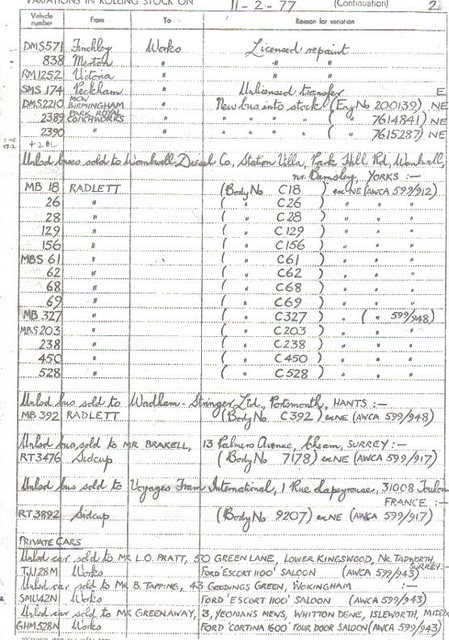 VARIATIONS IN ROLLING STOCK ON 11-2-77 (Continuation) 2
Vehicle number From To Reason for variation
DMS571 Finchley Works Licensed repaint
838 Merton " "
RM1252 Victoria " "
SMS 174 Peckham " Unlicensed transfer E
DMS2210 MCW BIRMINGHAM " New bus into stock (Eng No 200139) NE
2389 PARK ROYAL COACHWORKS " " " " " ( " " 7614841) NE
2390 " " " " " " ( " " 7615287) NE
Unlsd buses sold to Wombwell Diesel Co, Station Villa, Park Hill Rd, Wombwell,
nr. Barnsley, YORKS :-
MB 18 RADLETT (Body No C18 ) ex NE (AWCA 599/912)
26 " ( " C26 ) " " "
28 " ( " C28 ) " " "
129 " ( " C129 ) " " "
156 " ( " C156 ) " " "
MBS 61 " ( " C61 ) " " "
62 " ( " C62 ) " " "
68 " ( " C68 ) " " "
69 " ( " C69 ) " " "
MB 327 " ( " C327 ) " " ( " 599/948)
MBS 203 " ( " C203 ) " " "
238 " ( " C238 ) " " "
450 " ( " C450 ) " " "
528 " ( " C528 ) " " "
Unlsd bus sold to Wadham-Stringer Ltd., Portsmouth, HANTS :-
MB 392 RADLETT (Body No C392 ) ex NE (AWCA 599/948)
Unlsd bus sold to MR BRAKELL, 13 Palmers Avenue, Cheam, SURREY :-
RT3476 Sidcup (Body No 7178 ) ex NE (AWCA 599/917)
Unlsd bus sold to Voyages Fram International, 1 Rue Lapeyrouse, 31008 Toulouse
FRANCE :-
RT3892 Sidcup (Body No 9207) ex NE (AWCA 599/917)
PRIVATE CARS
Unlsd car sold to MR L.O. PRATT, 50 GREEN LANE, LOWER KINGSWOOD, Nr. TADWORTH, SURREY :-
TJJ28M Works FORD 'ESCORT 1100' SALOON (AWCA 599/943)
Unlsd car sold to MR B. TAPPING, 43 GOODINGS GREEN, WOKINGHAM :-
SMU42N Works FORD 'ESCORT 1100' SALOON (AWCA 599/943)
Unlsd car sold to MR GREENAWAY, 3, YEOMANS MEWS, WHITTON DENE, ISLEWORTH, MIDDX
GHM528N Works FORD 'CORTINA 1600' FOUR DOOR SALOON (AWCA 599/943)